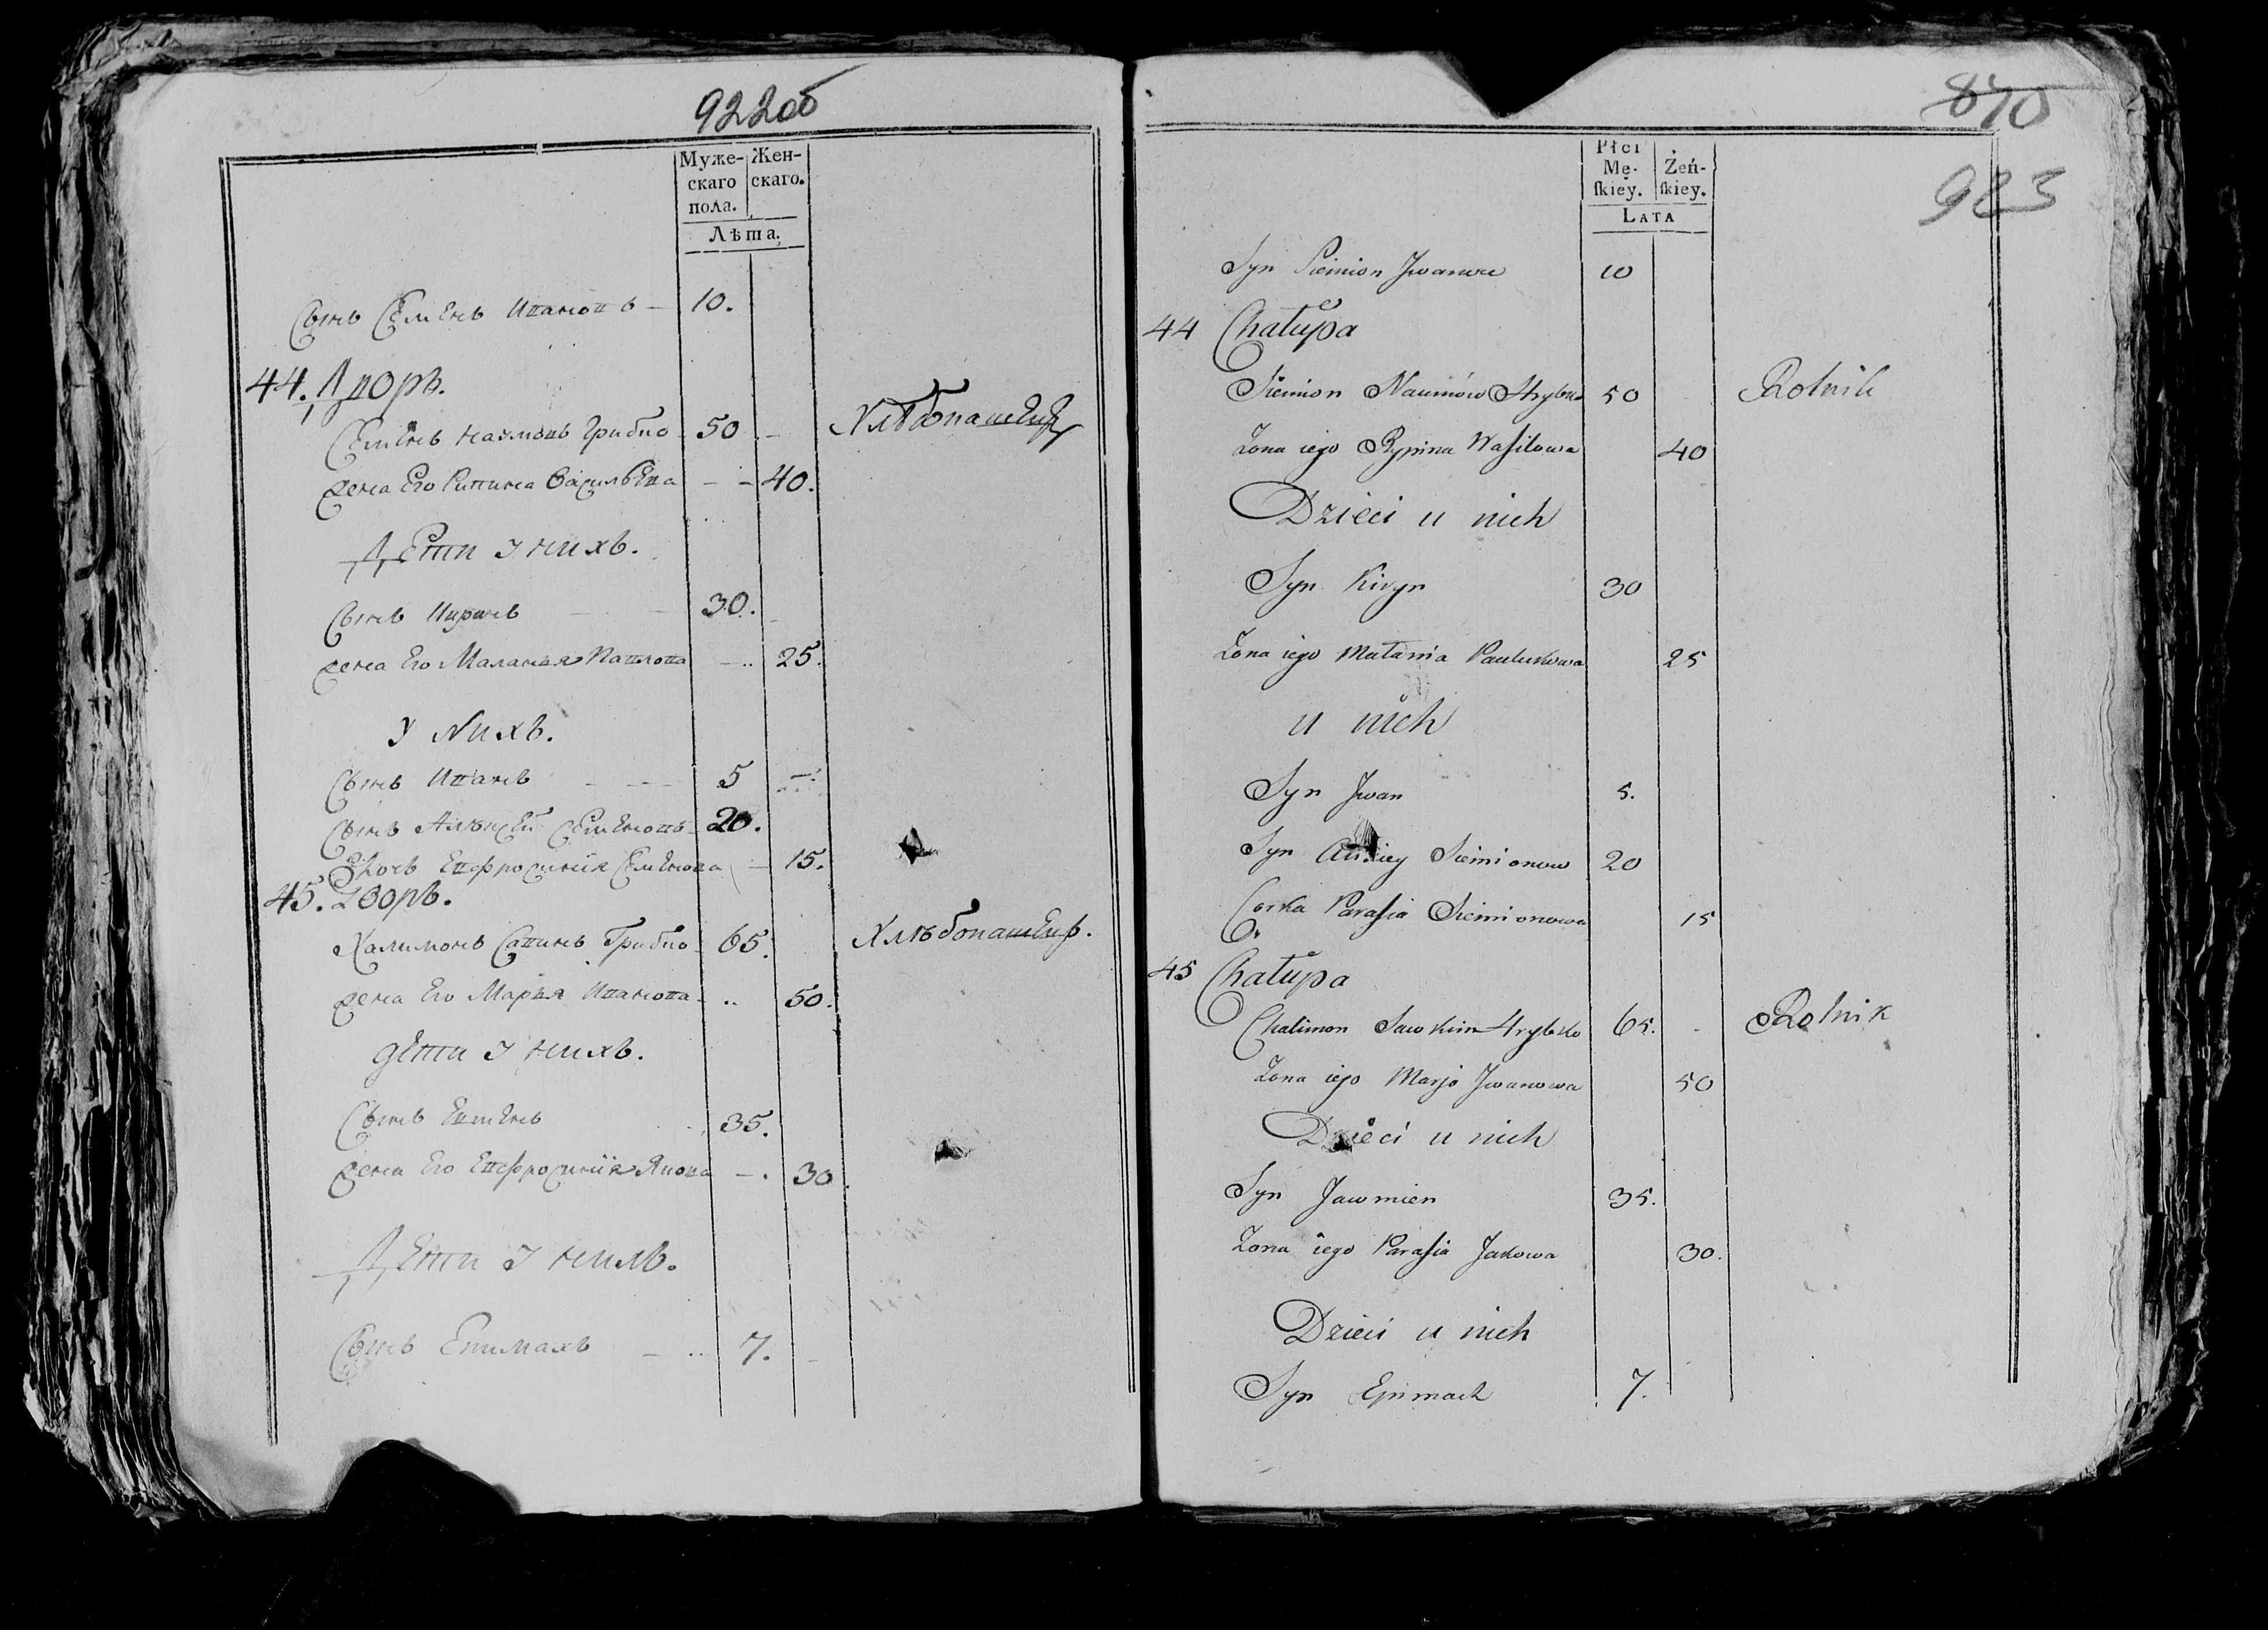 922об
Муже- Жен-
скаго скаго.
пола.
Лѣта.
Сынъ Семенъ Ивановъ 10.
44. Дворъ.
Семенъ Наумовъ Грибко 50 Хлѣбопашецъ
жена Его Рипина Васильева 40.
Дети у нихъ.
Сынъ 30.
жена Его Маланья Павлова 25.
у Нихъ.
Сынъ Иванъ 5
Сынъ Алексей Семеновъ 20.
Дочь Евфросинія Семенова 15.
45. Дворъ.
Халимонъ Савинъ Грибко 65. Хлѣбопашецъ.
жена Его Марья Иванова 50.
дети у нихъ.
Сынъ Евменъ 35.
жена Его Евфросинія Якова 30
Дети у нихъ.
Сынъ Епимахъ 7.
870
983
Płci
Mę- Żeń-
ſkiey. ſkiey.
LATA
Syn Siemion Jwanow 10
44 Chałupa
Siemion Naumów Hrybko 50 Rolnik
Żona iego Rypina Waſilowa 40
Dzieci u nich
Syn Kiryn 30
Żona iego Małania Paulukowa 25
u nich
Syn Jwan 5.
Syn Siemionow 20
Corka Paraſia Siemionowa 15
45 Chałupa
Chalimon Sawkim Hrybko 65. Rolnik
Żona iego Marja Jwanowa 50
Dzieci u nich
Syn Jawmien 35.
Żona iego Paraſia Jakowa 30.
Dzieci u nich
Syn Epimach 7.